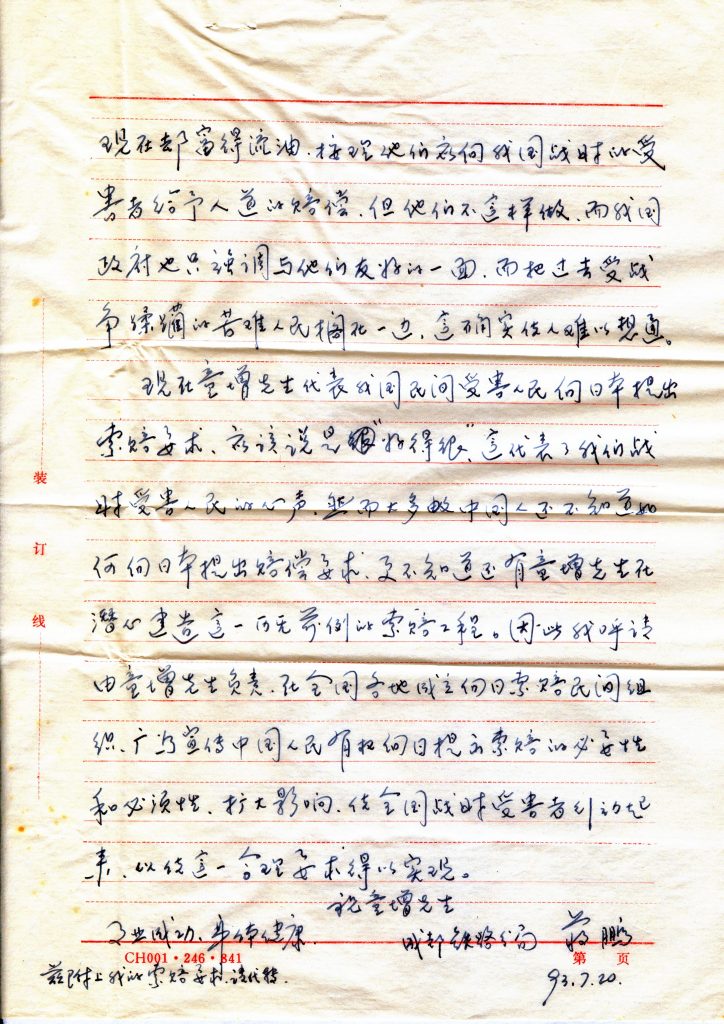 现在却富得流油，按理他们应向我国战时的受
害者给予人道的赔偿，但他们不这样做，而我国
政府也只强调与他们友好的一面，而把过去受战
争蹂躏的苦难人民搁在一边，这确实使人难以想通。
现在童增先生代表我国民间受害人民向日本提出
索赔要求，应该说是"好得很"，这代表了我们战
时受害人民的心声，然而大多数中国人还不知道如
何向日本提出赔偿要求，更不知道还有童增先生在
潜心建造这一史无前例的索赔工程。因此我呼请
由童增先生负责，在全国各地成立向日索赔民间组
织，广为宣传中国人民有权向日提出索赔的必要性
和必须性，扩大影响，使全国战时受害者行动起
来，以使这一合理要求得以实现。
祝童增先生
事业成功，身体健康。
成都铁路分局 蒋鹏
CH001·246·841
第 页
兹附上我的索赔要求，请代转。
93.7.20.
装
订
线